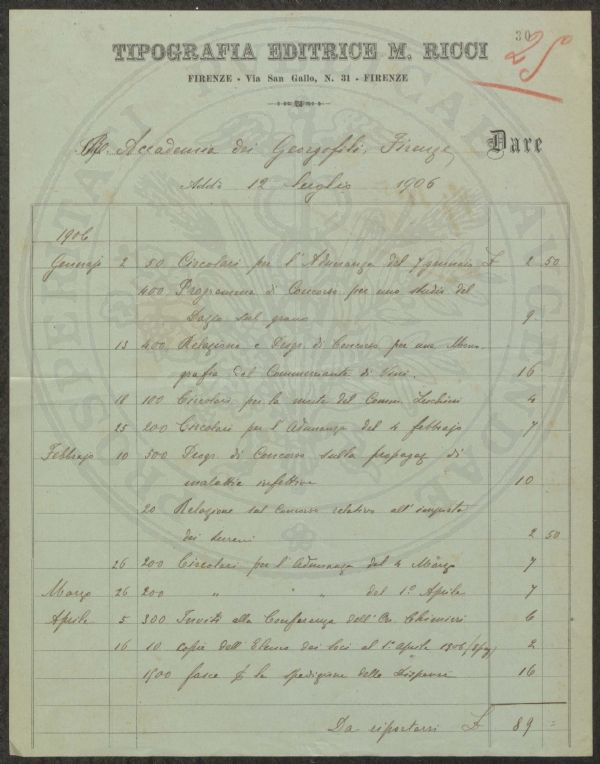 30
25
TIPOGRAFIA EDITRICE M. RICCI
FIRENZE - Via San Gallo, N. 31 - FIRENZE
R. Accademia dei Georgofili, Firenze Dare
Addì 12 Luglio 1906
1906
Gennajo 2 50 Circolari per l'Adunanza del 7 gennaio £ 2 50
400 Programma di Concorso per uno studio del
Dazio sul grano 9
13 400 Relazione e Progr. di Concorso per una Mono
grafia del Commerciante di Vini. 16
18 100 Circolari per la morte del Comm. 4
25 200 Circolari per l'Adunanza del 4 febbrajo 7
Febbrajo 10 500 Progr. di Concorso sulla propagaz di
malattie infettive 10
20 Relazione sul concorso relativo all'imposta
dei terreni 2 50
26 200 Circolari per l'Adunanza del 4 Marzo 7
Marzo 26 200 " " " del 1º Aprile 7
Aprile 5 300 Inviti alla Conferenza dell'On. Chimirri 6
16 10 copie dell'Elenco dei Soci al 1º aprile 1906 2
1500 fasce p. la spedizione delle Dispense 16
Da riportarsi £ 89 =
PROSPERITATI PUBLICAE AUGENDAE